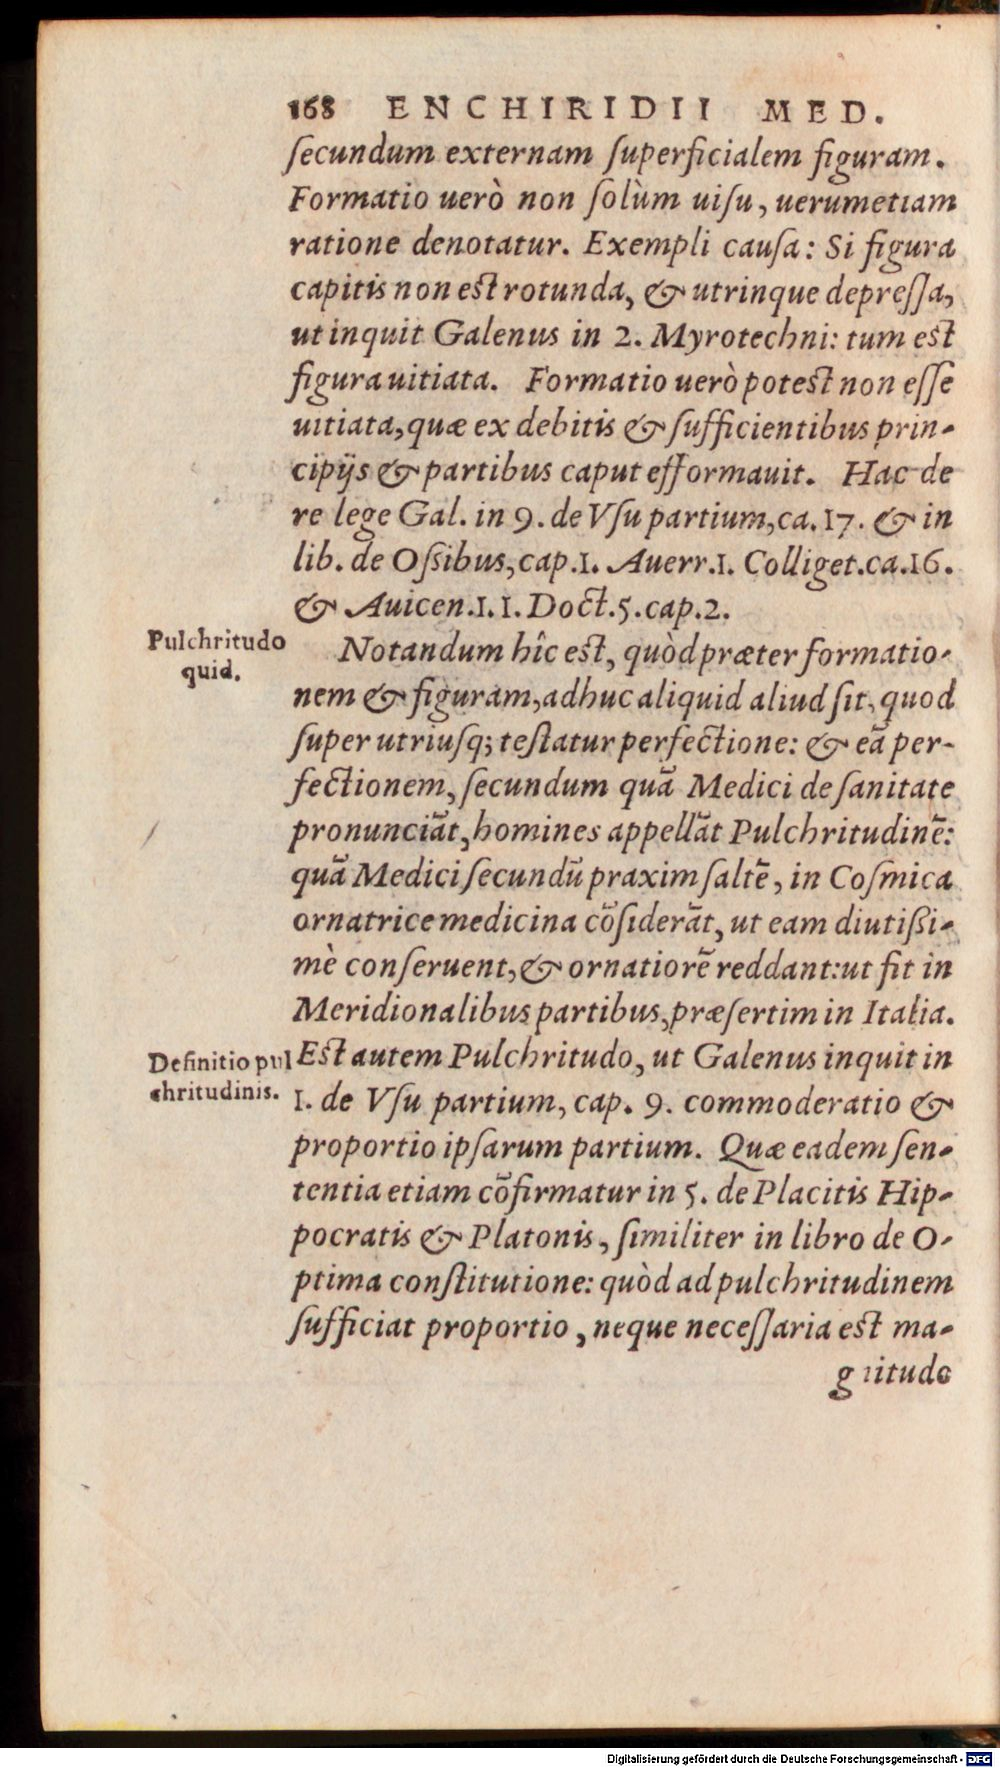 168 ENCHIRIDII MED.
ſecundum externam ſuperficialem figuram.
Formatio uerò non ſolùm uiſu, uerumetiam
ratione denotatur. Exempli cauſa: Si figura
capitis non est rotunda, & utrinque depreſſa,
ut inquit Galenus in 2. Myrotechni: tum est
figura uitiata. Formatio uerò potest non eſſe
uitiata, quæ ex debitis & ſufficientibus prin-
cipijs & partibus caput efformauit. Hac de
re lege Gal. in 9. de Vſu partium, ca. 17. & in
lib. de Oſsibus, cap. 1. Auerr. 1. Colliget. ca. 16.
& Auicen. 1. 1. Doct. 5. cap. 2.
Pulchritudo
quid.
Notandum hîc est, quòd præter formatio-
nem & figuram, adhuc aliquid aliud ſit, quod
ſuper utriuſq; teſtatur perfectione: & eã per-
fectionem, ſecundum quã Medici de ſanitate
pronunciãt, homines appellãt Pulchritudinẽ:
quã Medici ſecundũ praxim ſaltẽ, in Coſmica
ornatrice medicina cõſiderãt, ut eam diutiſſi-
mè conſeruent, & ornatiorẽ reddant: ut fit in
Meridionalibus partibus, præſertim in Italia.
Definitio pul
chritudinis.
Est autem Pulchritudo, ut Galenus inquit in
1. de Vſu partium, cap. 9. commoderatio &
proportio ipſarum partium. Quæ eadem ſen-
tentia etiam cõfirmatur in 5. de Placitis Hip-
pocratis & Platonis, ſimiliter in libro de O-
ptima conſtitutione: quòd ad pulchritudinem
ſufficiat proportio, neque neceſſaria est ma-
gnitudo
Digitalisierung gefördert durch die Deutsche Forschungsgemeinschaft - DFG